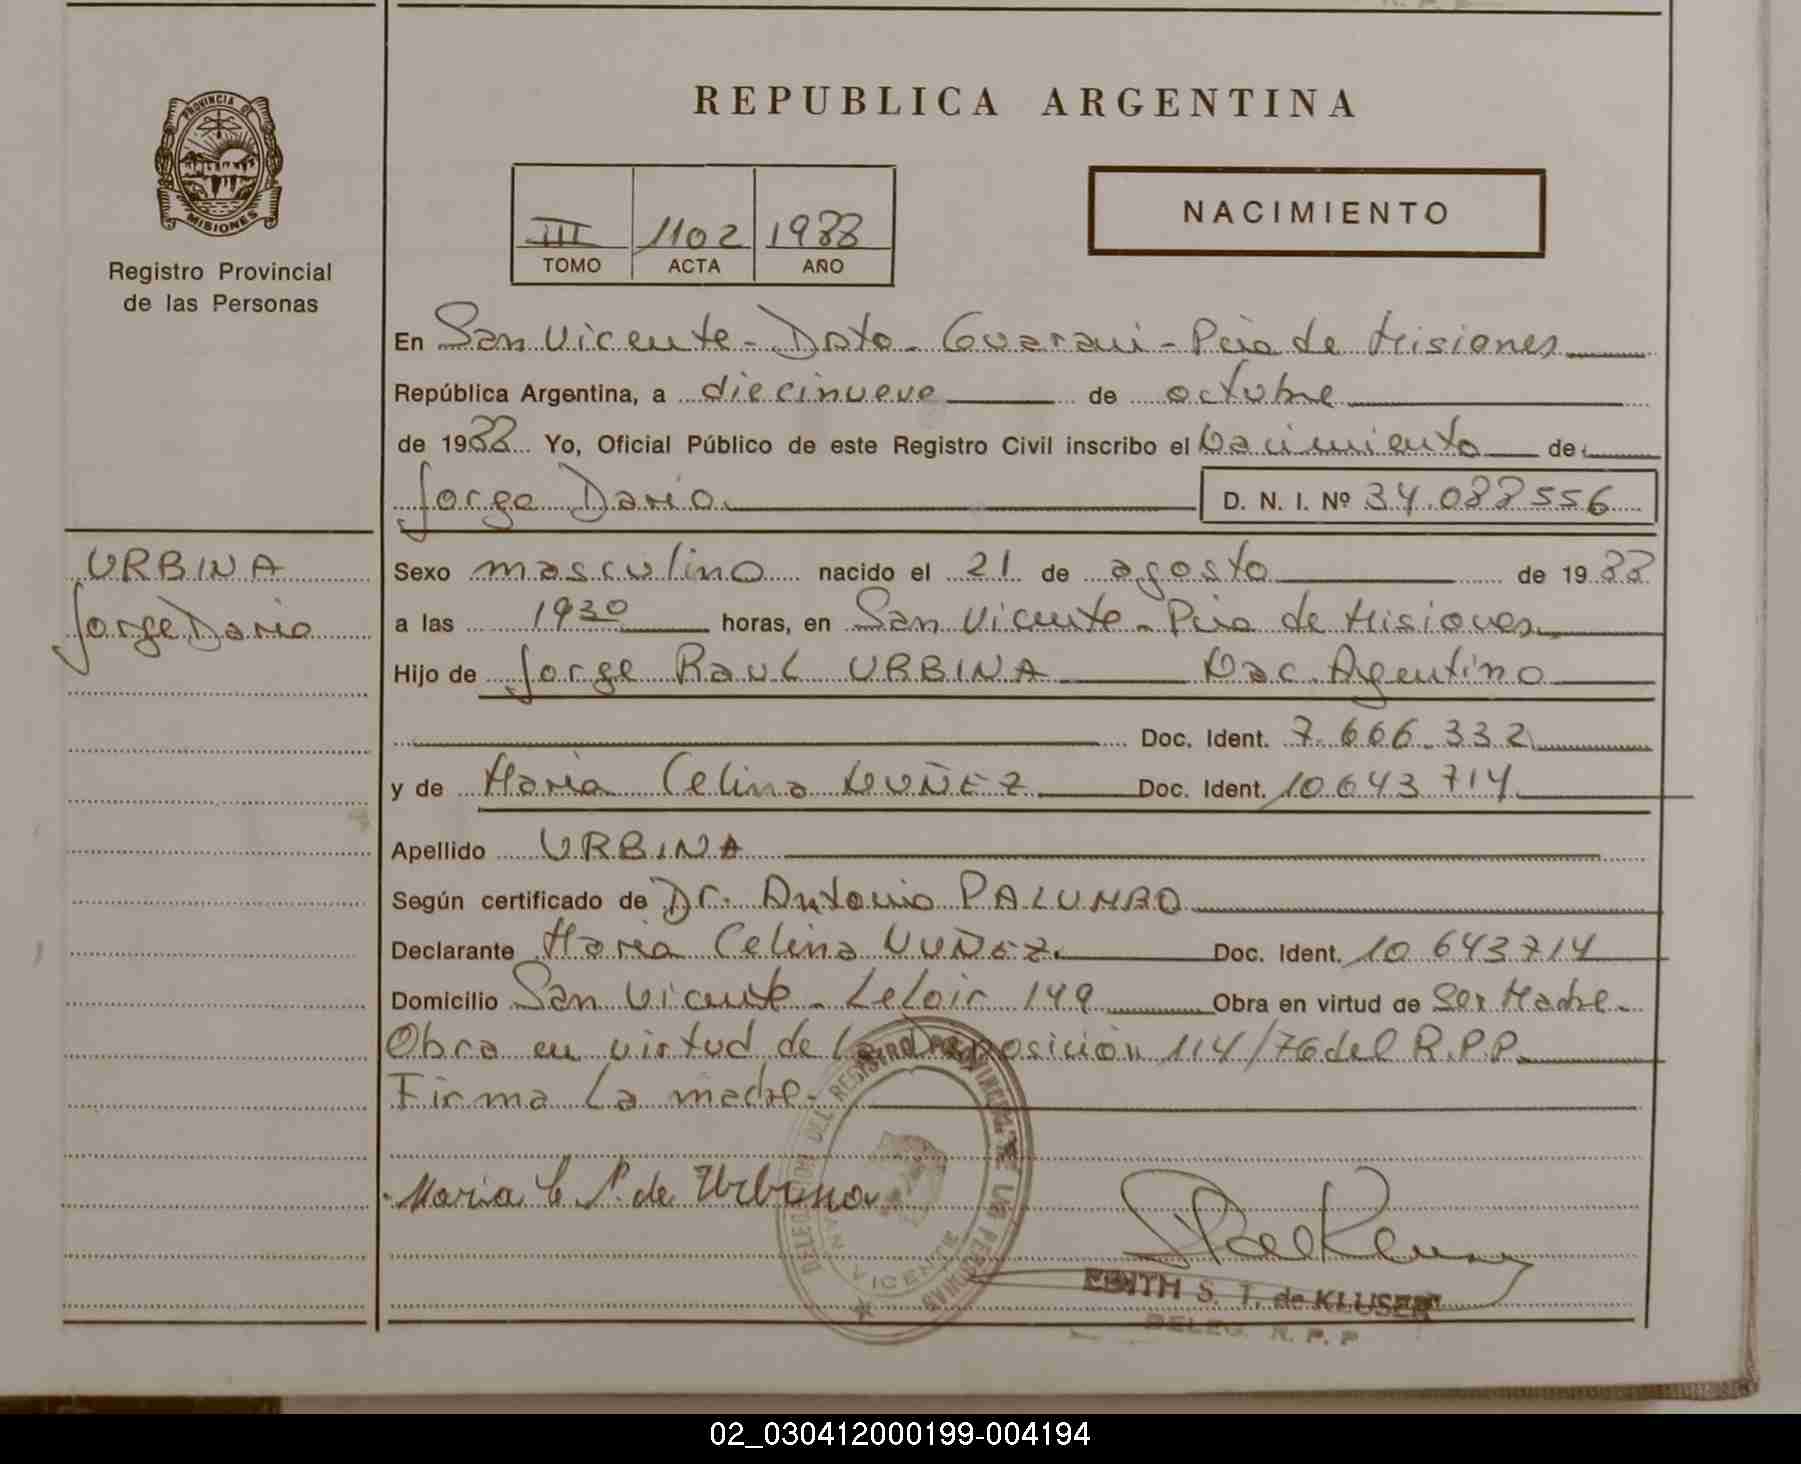 REPUBLICA ARGENTINA
PROVINCIA DE
MISIONES
Registro Provincial
de las Personas
III 1102 1988
TOMO ACTA AÑO
NACIMIENTO
En San Vicente - Dpto. Guarani - Pcia de Misiones
República Argentina, a diecinueve de octubre
de 1988 Yo, Oficial Público de este Registro Civil inscribo el Nacimiento de
Jorge Dario D. N. I. Nº 34.088556
URBINA
Jorge Dario
Sexo masculino nacido el 21 de agosto de 1988
a las 1930 horas, en San Vicente - Pcia de Misiones
Hijo de Jorge Raul URBINA Nac. Argentino
Doc. Ident. 7.666.332
y de Maria Celina NUÑEZ Doc. Ident. 10643714
Apellido URBINA
Según certificado de Dr. Antonio PALUMBO
Declarante Maria Celina NUÑEZ. Doc. Ident. 10 643714
Domicilio San Vicente - Leloir 149 Obra en virtud de Ser Madre.
Obra en virtud de la Disposición 114/76 del R.P.P.
Firma La madre.
Maria C N. de Urbina
DELEGACION DEL REGISTRO PROVINCIAL DE LAS PERSONAS
SAN VICENTE
EDITH S. T. de KLUSER
DELEG. R. P. P
02_030412000199-004194